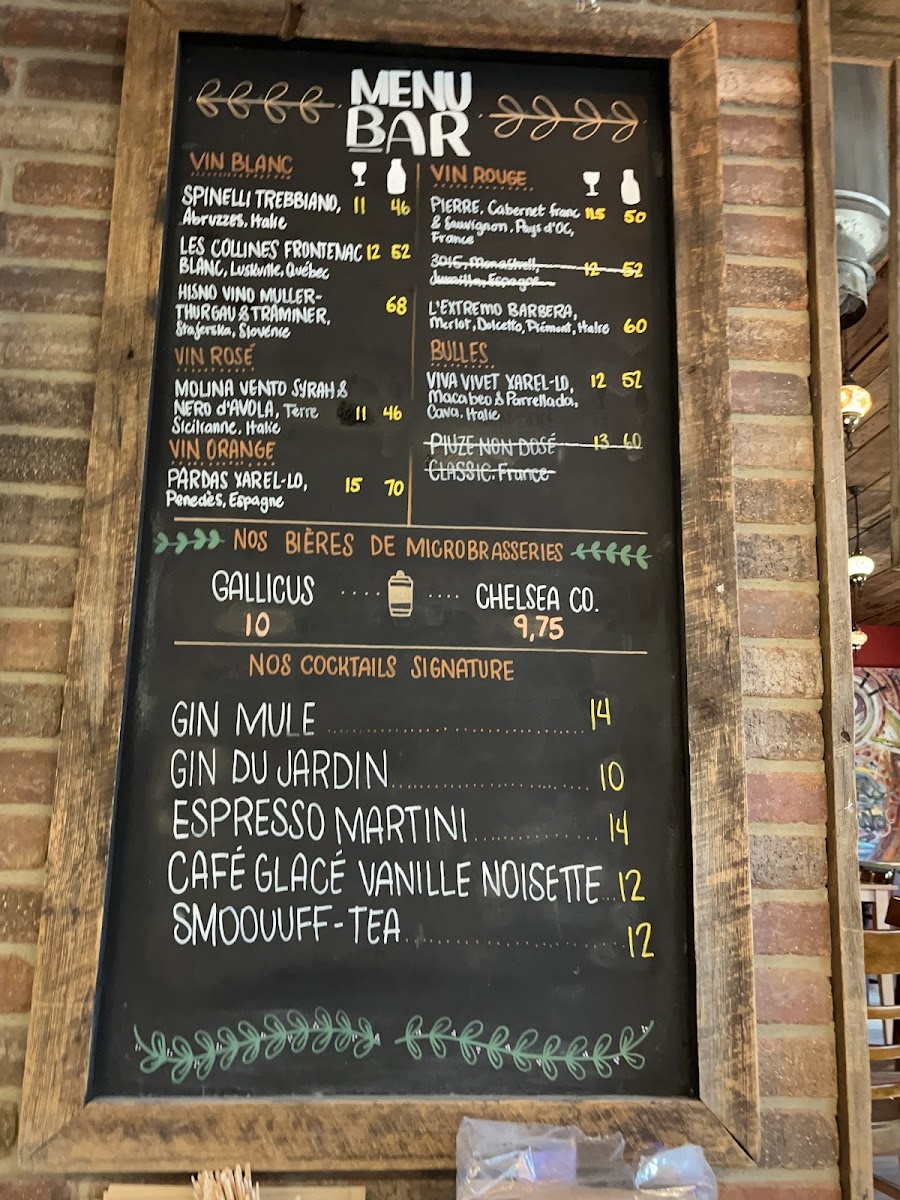 MENU
BAR
VIN BLANC
SPINELLI TREBBIANO, 11 46
Abruzzes, Italie
LES COLLINES FRONTENAC 12 52
BLANC, Luskville, Québec
HISNO VINO MULLER-
THURGAU & TRAMINER, 68
Stajerska, Slovénie
VIN ROSÉ
MOLINA VENTO SYRAH &
NERO d'AVOLA, Terre 11 46
Sicilianne, Italie
VIN ORANGE
PARDAS XAREL-LO, 15 70
Penedès, Espagne
VIN ROUGE
PIERRE, Cabernet franc 11.5 50
& Sauvignon, Pays d'OC,
France
3015, Monastrell, 12 52
Jumilla, Espagne
L'EXTREMO BARBERA,
Merlot, Dolcetto, Piémont, Italie 60
BULLES
VIVA VIVET XAREL-LO, 12 52
Macabeo & Parrellada,
Cava, Italie
PIUZE NON DOSÉ 13 60
CLASSIC, France
NOS BIÈRES DE MICROBRASSERIES
GALLICUS CHELSEA CO.
10 9,75
NOS COCKTAILS SIGNATURE
GIN MULE 14
GIN DU JARDIN 10
ESPRESSO MARTINI 14
CAFÉ GLACÉ VANILLE NOISETTE 12
SMOOUUFF-TEA 12